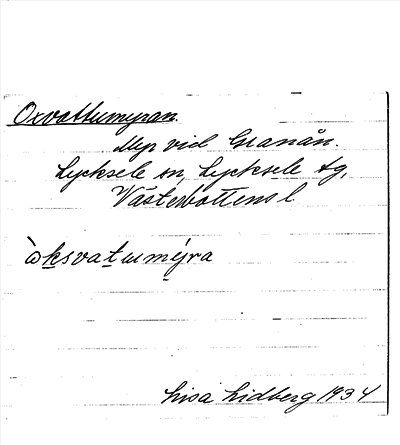 Oxvattumyran.
Myr vid Granån.
Lycksele sn, Lycksele tg,
Västerbottens l
òksvatumýra
Lisa Lidberg 1934